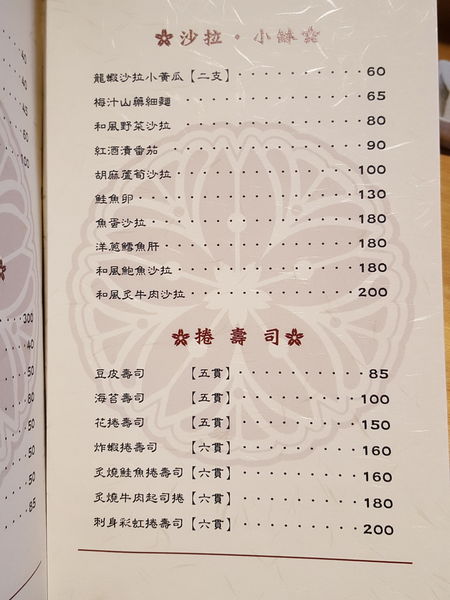 沙拉・小缽
龍蝦沙拉小黃瓜【二支】 60
梅汁山藥細麵 65
和風野菜沙拉 80
紅酒漬番茄 90
胡麻蘆筍沙拉 100
鮭魚卵 130
魚蛋沙拉 180
洋蔥鱈魚肝 180
和風鮑魚沙拉 180
和風炙牛肉沙拉 200
捲壽司
豆皮壽司【五貫】 85
海苔壽司【五貫】 100
花捲壽司【五貫】 150
炸蝦捲壽司【六貫】 160
炙燒鮭魚捲壽司【六貫】 160
炙燒牛肉起司捲【六貫】 180
刺身彩虹捲壽司【六貫】 200
40
40
45
100
300
40
50
80
50
50
50
85